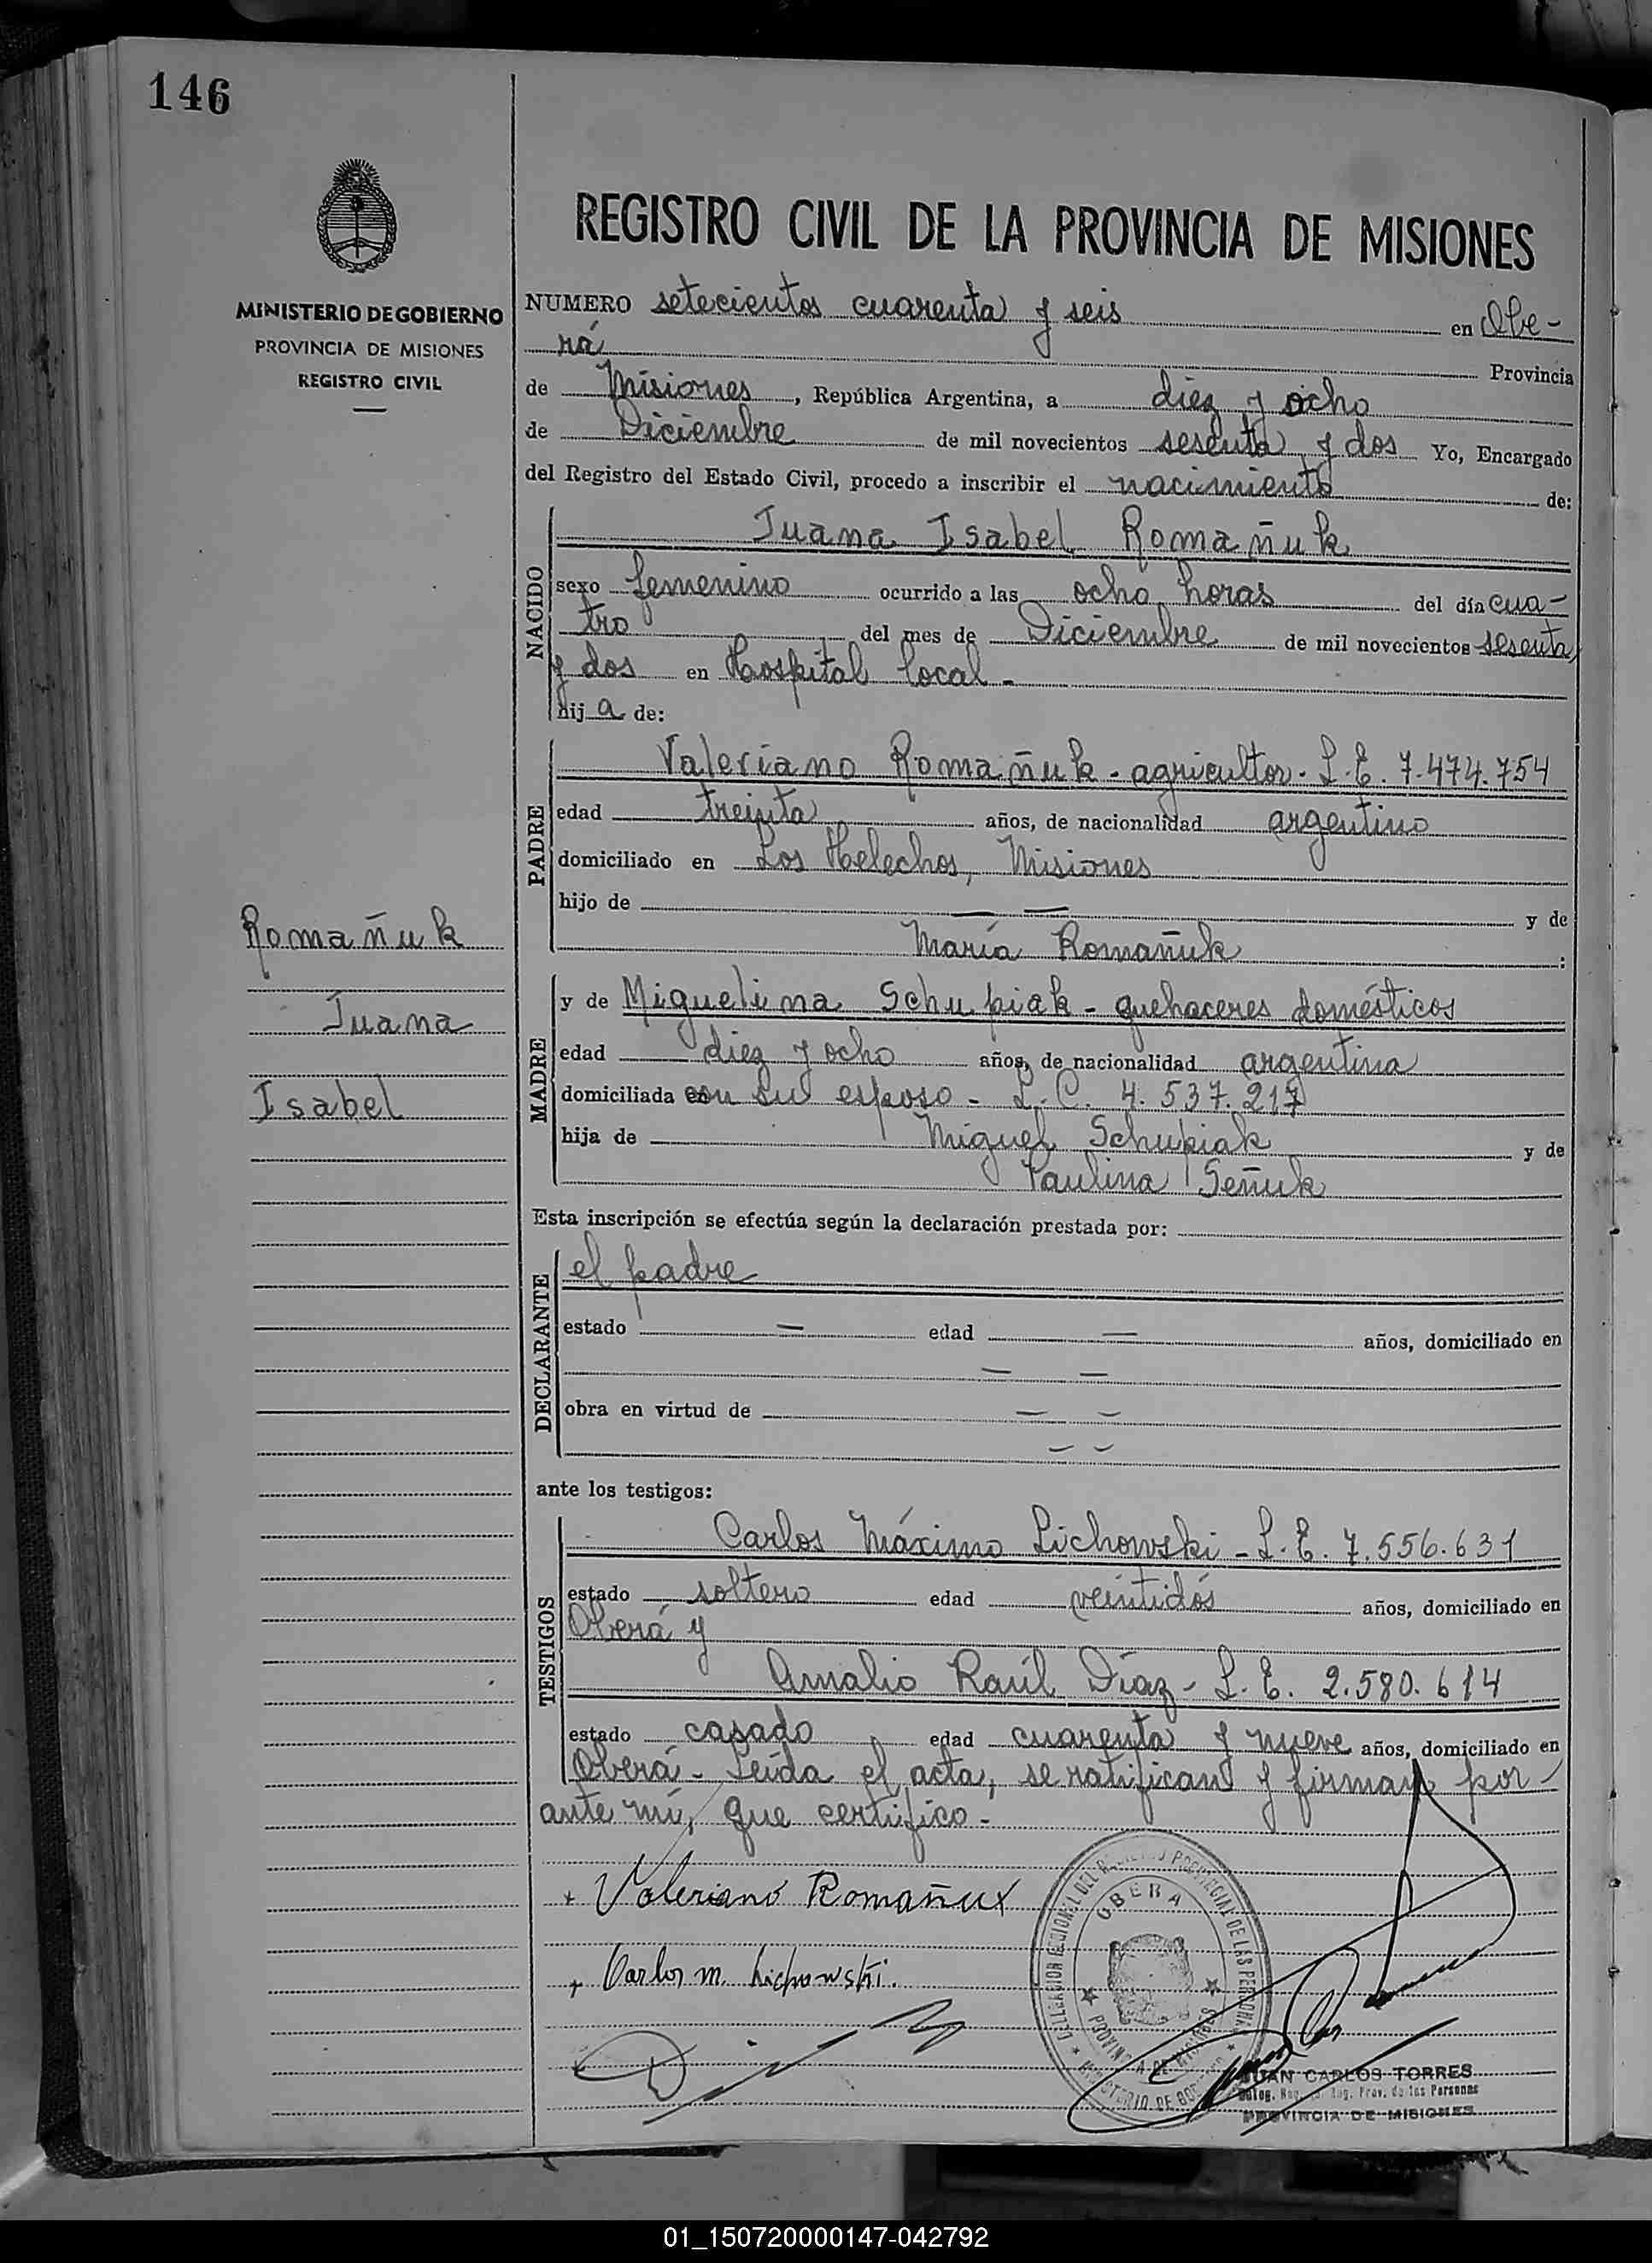 146
MINISTERIO DE GOBIERNO
PROVINCIA DE MISIONES
REGISTRO CIVIL
REGISTRO CIVIL DE LA PROVINCIA DE MISIONES
NUMERO setecientos cuarenta y seis en Obe-
rá Provincia
de Misiones, República Argentina, a diez y ocho
de Diciembre de mil novecientos sesenta y dos Yo, Encargado
del Registro del Estado Civil, procedo a inscribir el nacimiento de:
NACIDO
Juana Isabel Romañuk
sexo femenino ocurrido a las ocho horas del día cua-
tro del mes de Diciembre de mil novecientos sesenta
y dos en Hospital local -
hija de:
PADRE
Valeriano Romañuk - agricultor - L.E. 7.474.754
edad treinta años, de nacionalidad argentino
domiciliado en Los Helechos, Misiones
hijo de — — y de
María Romañuk :
Romañuk
Juana
Isabel
MADRE
y de Miguelina Schupiak - quehaceres domésticos
edad diez y ocho años, de nacionalidad argentina
domiciliada con su esposo - L.C. 4.537.217
hija de Miguel Schupiak y de
Paulina Señuk
Esta inscripción se efectúa según la declaración prestada por:
DECLARANTE
el padre
estado — edad — años, domiciliado en
— —
obra en virtud de — —
— —
ante los testigos:
TESTIGOS
Carlos Máximo Lichowski - L.E. 7.556.631
estado soltero edad veintidós años, domiciliado en
Oberá y
Amalio Raúl Díaz - L.E. 2.580.614
estado casado edad cuarenta y nueve años, domiciliado en
Oberá - Leída el acta, se ratifican y firman por
ante mí, que certifico -
Valeriano Romañux
Carlos M. Lichowski.
OBERA
PROVINCIA DE MISIONES
JUAN CARLOS TORRES
Prov. de las Personas
PROVINCIA DE MISIONES
01_150720000147-042792